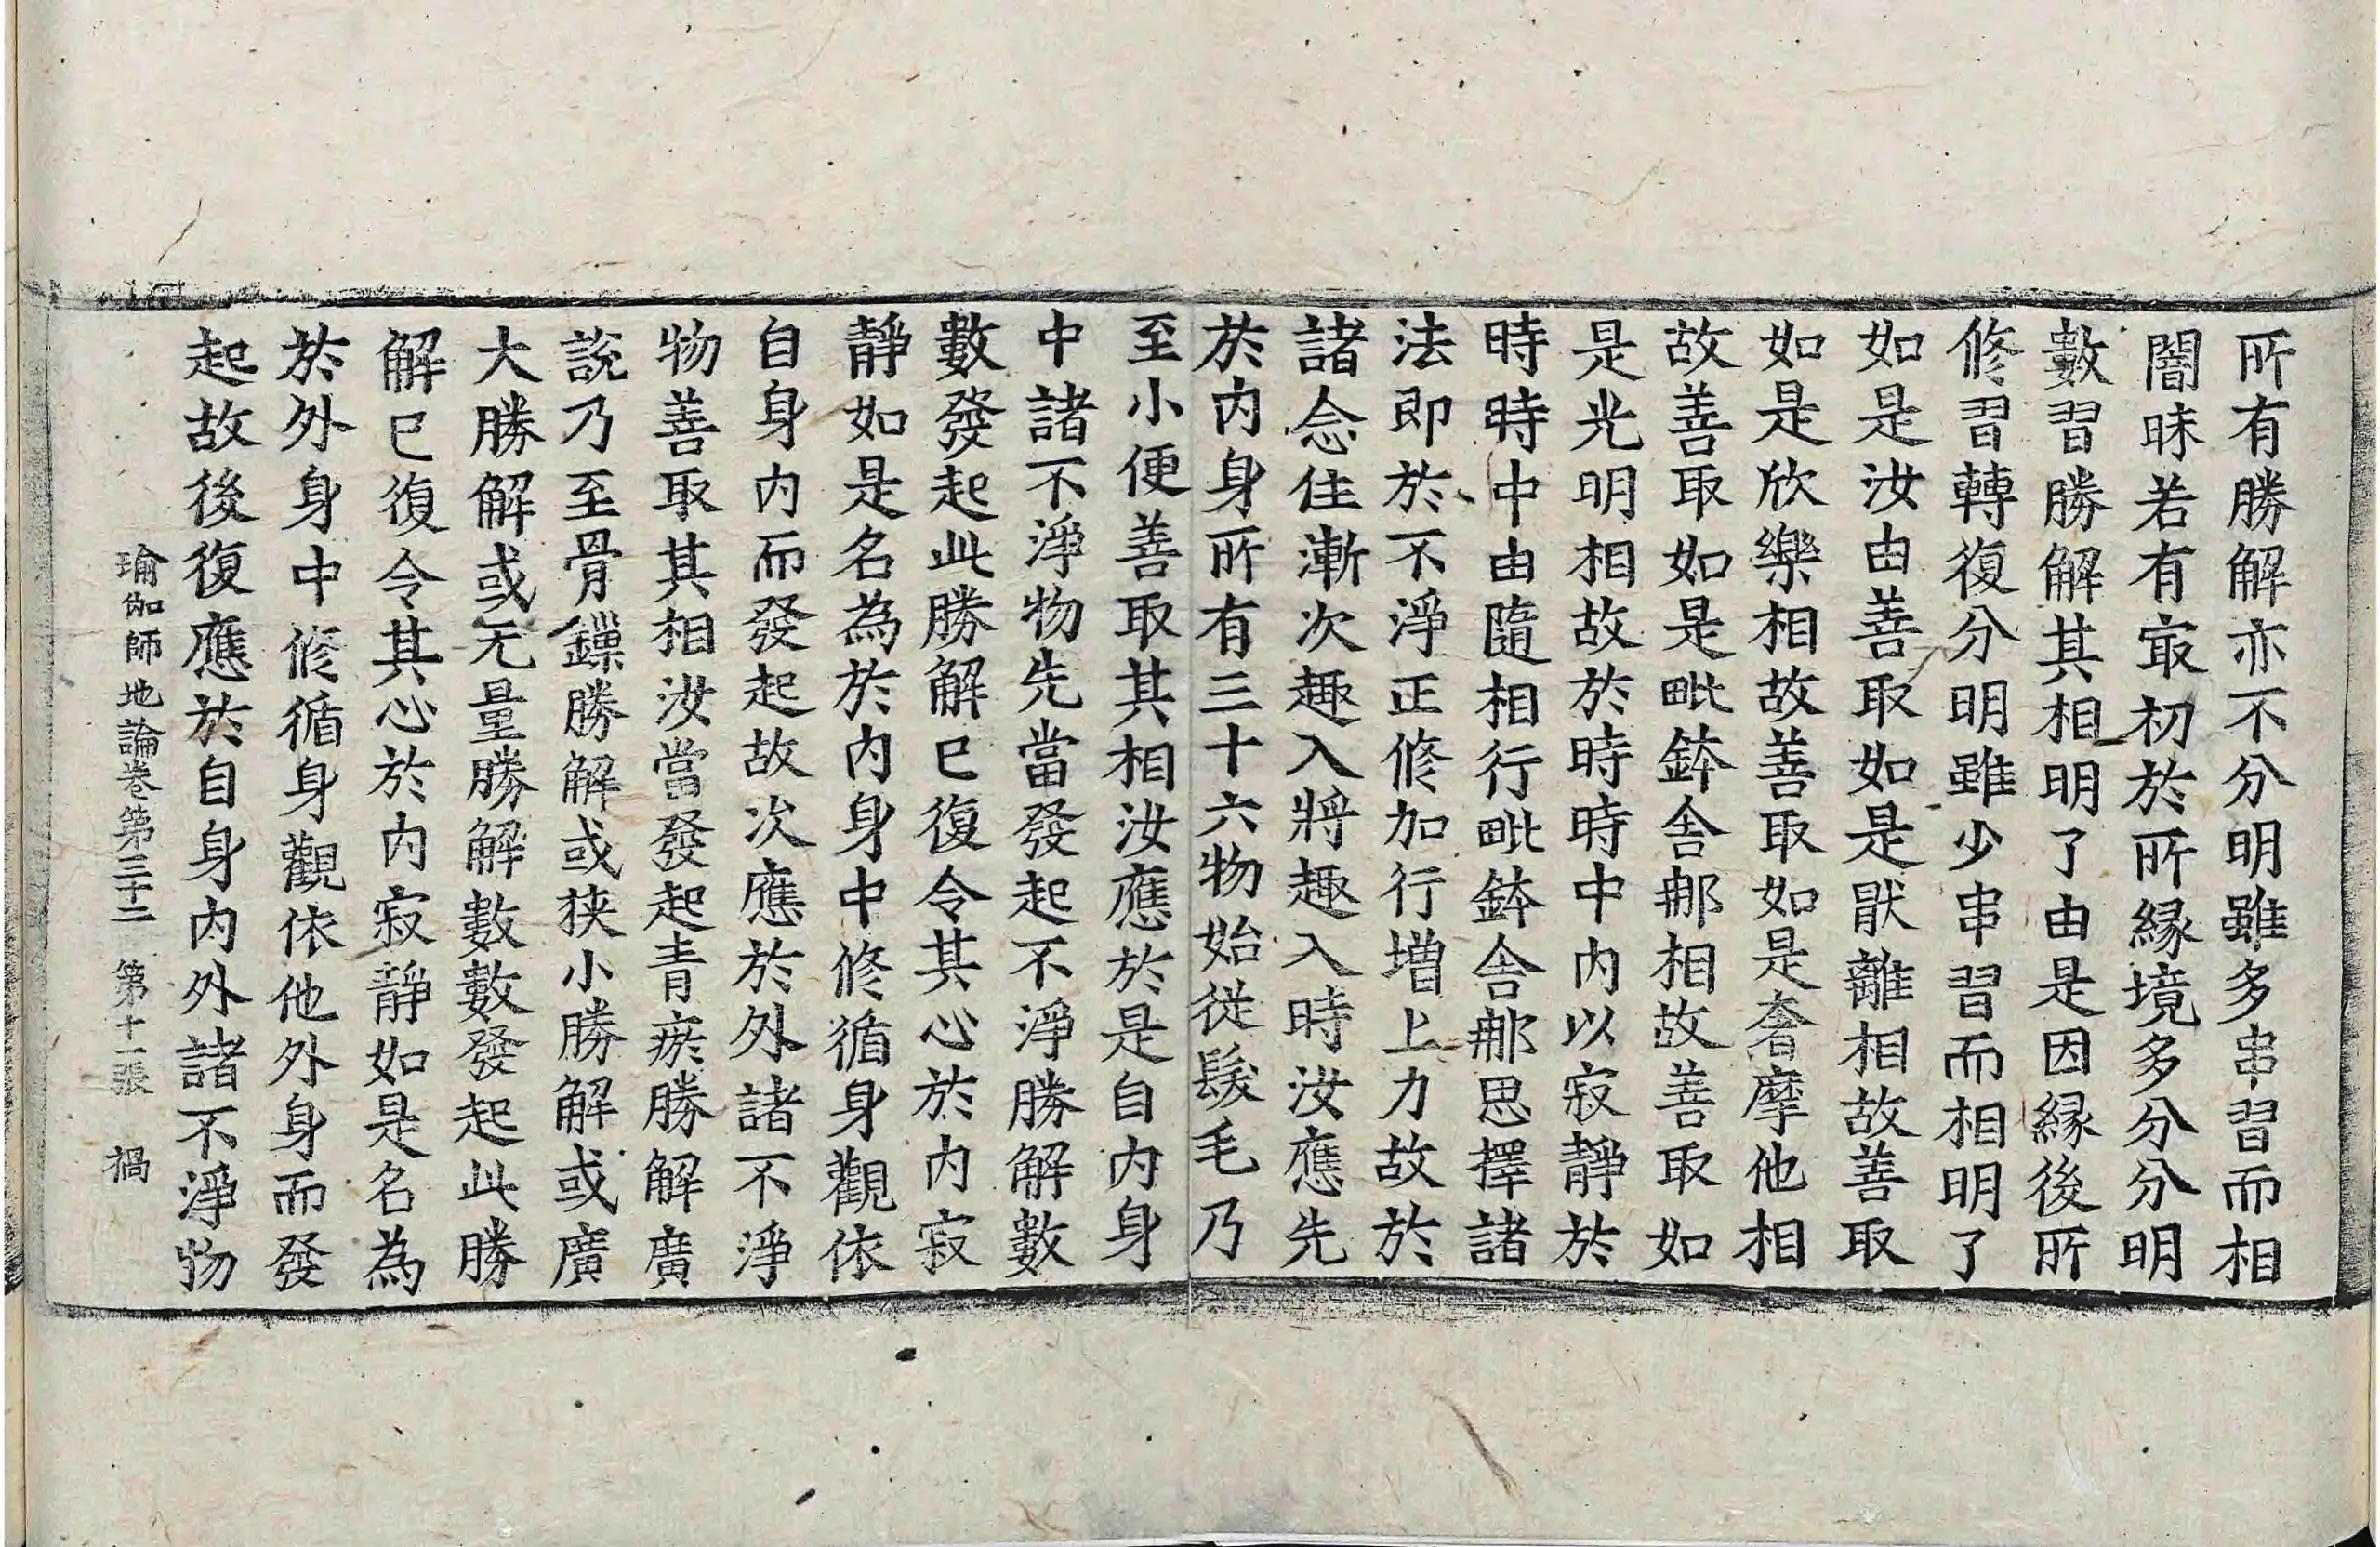 所有勝解亦不分明雖多串習而相
闇昧若有㝡初於所緣境多分分明
數習勝解其相明了由是因緣後所
修習轉復分明雖少串習而相明了
如是汝由善取如是猒離相故善取
如是欣樂相故善取如是奢摩他相
故善取如是毗鉢舍那相故善取如
是光明相故於時時中內以寂靜於
時時中由隨相行毗鉢舍那思擇諸
法即於不淨正修加行增上力故於
諸念住漸次趣入將趣入時汝應先
於內身所有三十六物始從髮毛乃
至小便善取其相汝應於是自內身
中諸不淨物先當發起不淨勝解數
數發起此勝解已復令其心於內寂
靜如是名為於內身中修循身觀依
自身內而發起故次應於外諸不淨
物善取其相汝當發起青瘀勝解廣
說乃至骨鏁勝解或狹小勝解或廣
大勝解或无量勝解數數發起此勝
解已復令其心於內寂靜如是名為
於外身中修循身觀依他外身而發
起故後復應於自身內外諸不淨物
瑜伽師地論卷第三十二 第十一張 禍